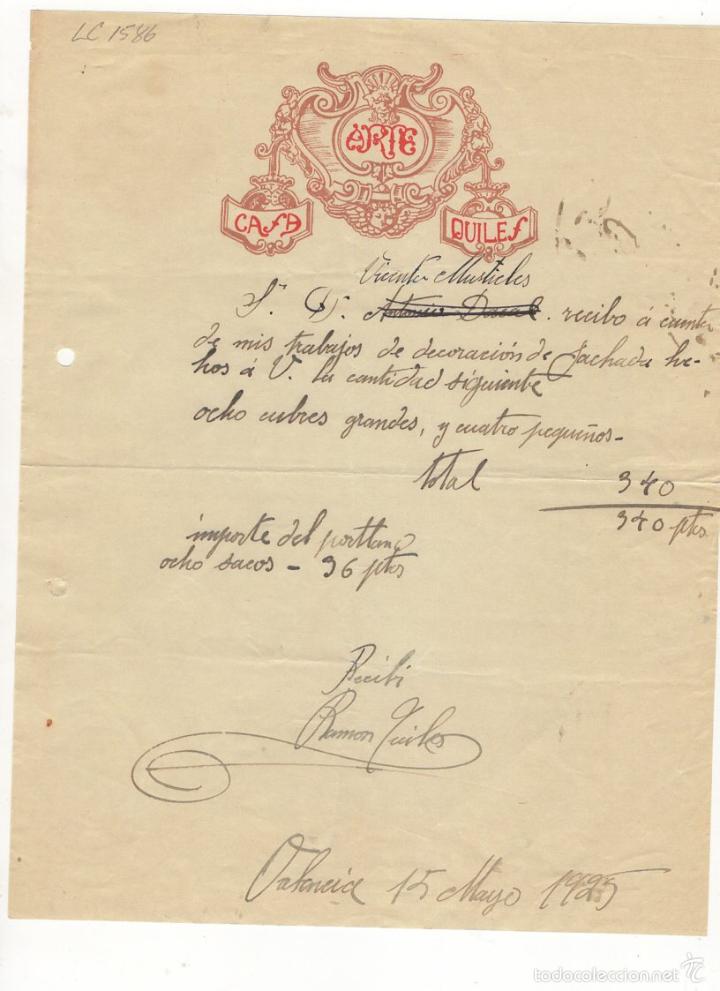 LC 1586
ARTE
CASA QUILES
Vicente Mustieles
Sr. D. recibo á cuenta
de mis trabajos de decoración de fachada he-
hos á V. la cantidad siguiente
ocho cubres grandes, y cuatro pequeños-
total 340
340 ptas
importe del porttland
ocho sacos - 36 ptas
Recibi
Ramon Quiles
Valencia 15 Mayo 1925
todocoleccion.net